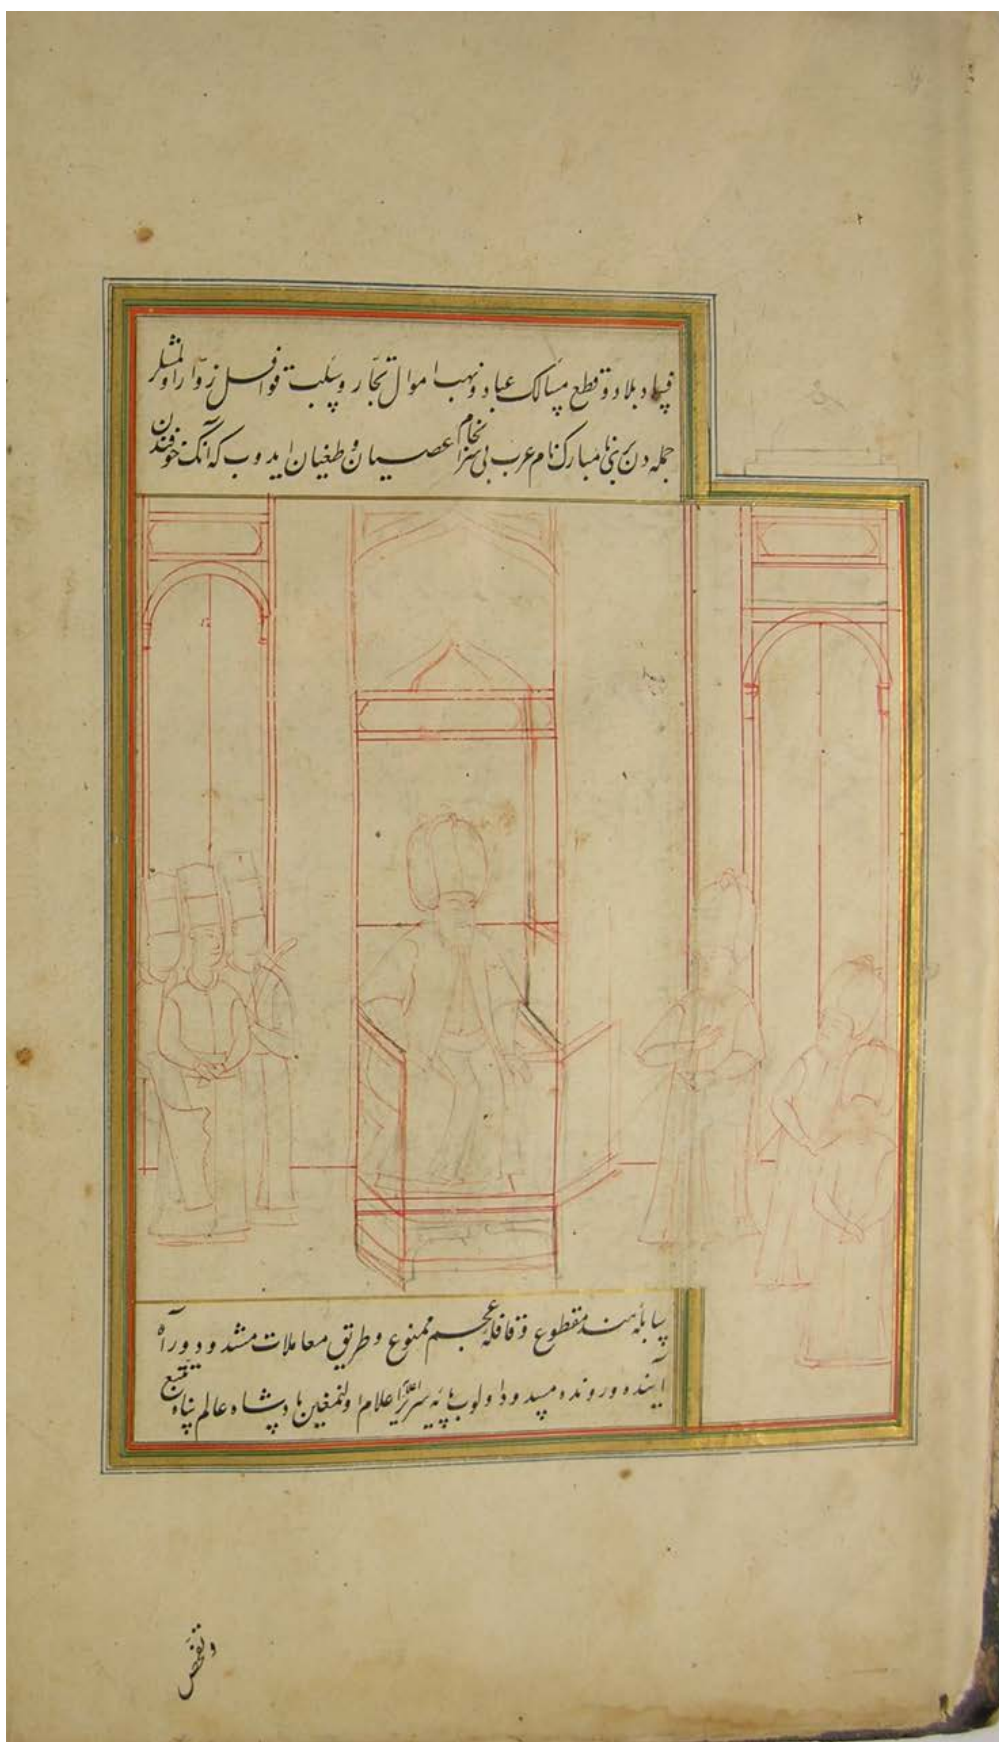 فساد بلاد و قطع مسالك عباد و نهب اموال تجار و سلب قوافل زوار اولمشلر
جمله دن بری بنی مبارك نام عرب بی سرانجام عصیان و طغیان ایدوب كه آنك خوفندن
سابله هند مقطوع و قافلهٔ عجم ممنوع و طریق معاملات مشدود و راه
آینده و رونده مسدود اولوب پایهٔ سریر اعلایه اعلام اولنمغین پادشاه عالم پناه تتبع
و تفحص